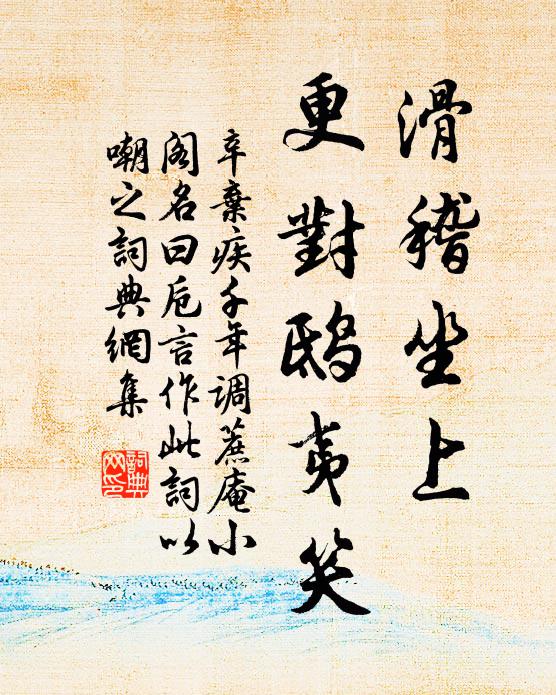 滑稽坐上
更對鴟夷笑
辛棄疾千年調蔗庵小
阁名曰卮言作此詞以
嘲之詞典網集
詞典
网印